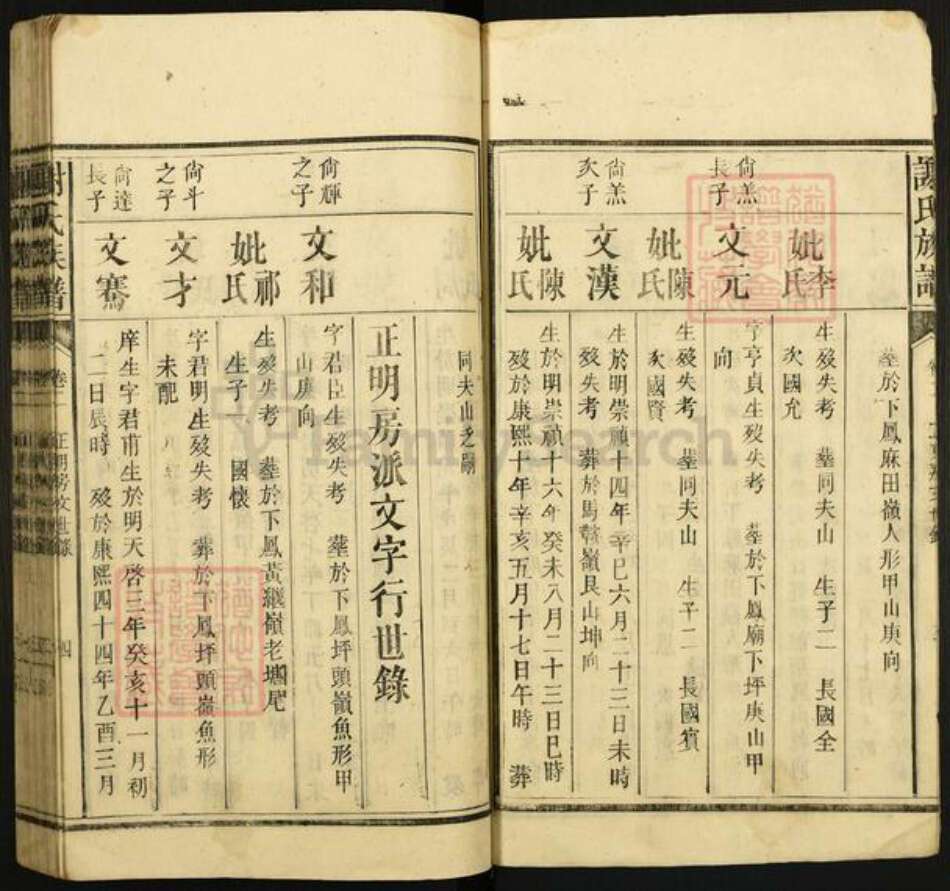 謝氏族譜
葬於下鳳麻田嶺人形甲山庚向
妣李氏
生殁失考 葬同夫山 生子二 長國全
次國允
尚羔長子
文元
字亨貞生殁失考 葬於下鳳廟下坪庚山甲
向
妣陳氏
生殁失考 葬同夫山 生子二 長國賓
次國賢
尚羔次子
文漢
生於明崇禎十四年辛巳六月二十三日未時
殁失考 葬於馬鞍嶺艮山坤向
妣陳氏
生於明崇禎十六年癸未八月二十三日巳時
殁於康熙十年辛亥五月十七日午時 葬
同夫山之
正明房派文字行世錄
尚輝之子
文和
字君臣生殁失考 葬於下鳳坪頭嶺魚形甲
山庚向
妣祁氏
生殁失考 葬於下鳳黃繼嶺老塘尾
生子一 國懷
尚斗之子
文才
字君明生殁失考 葬於下鳳坪頭嶺魚形
未配
尚達長子
文騫
庠生字君甫生於明天啓三年癸亥十一月初
二日辰時 殁於康熙四十四年乙酉三月
氏族譜
卷二 正明房文世錄
四
FamilySearch